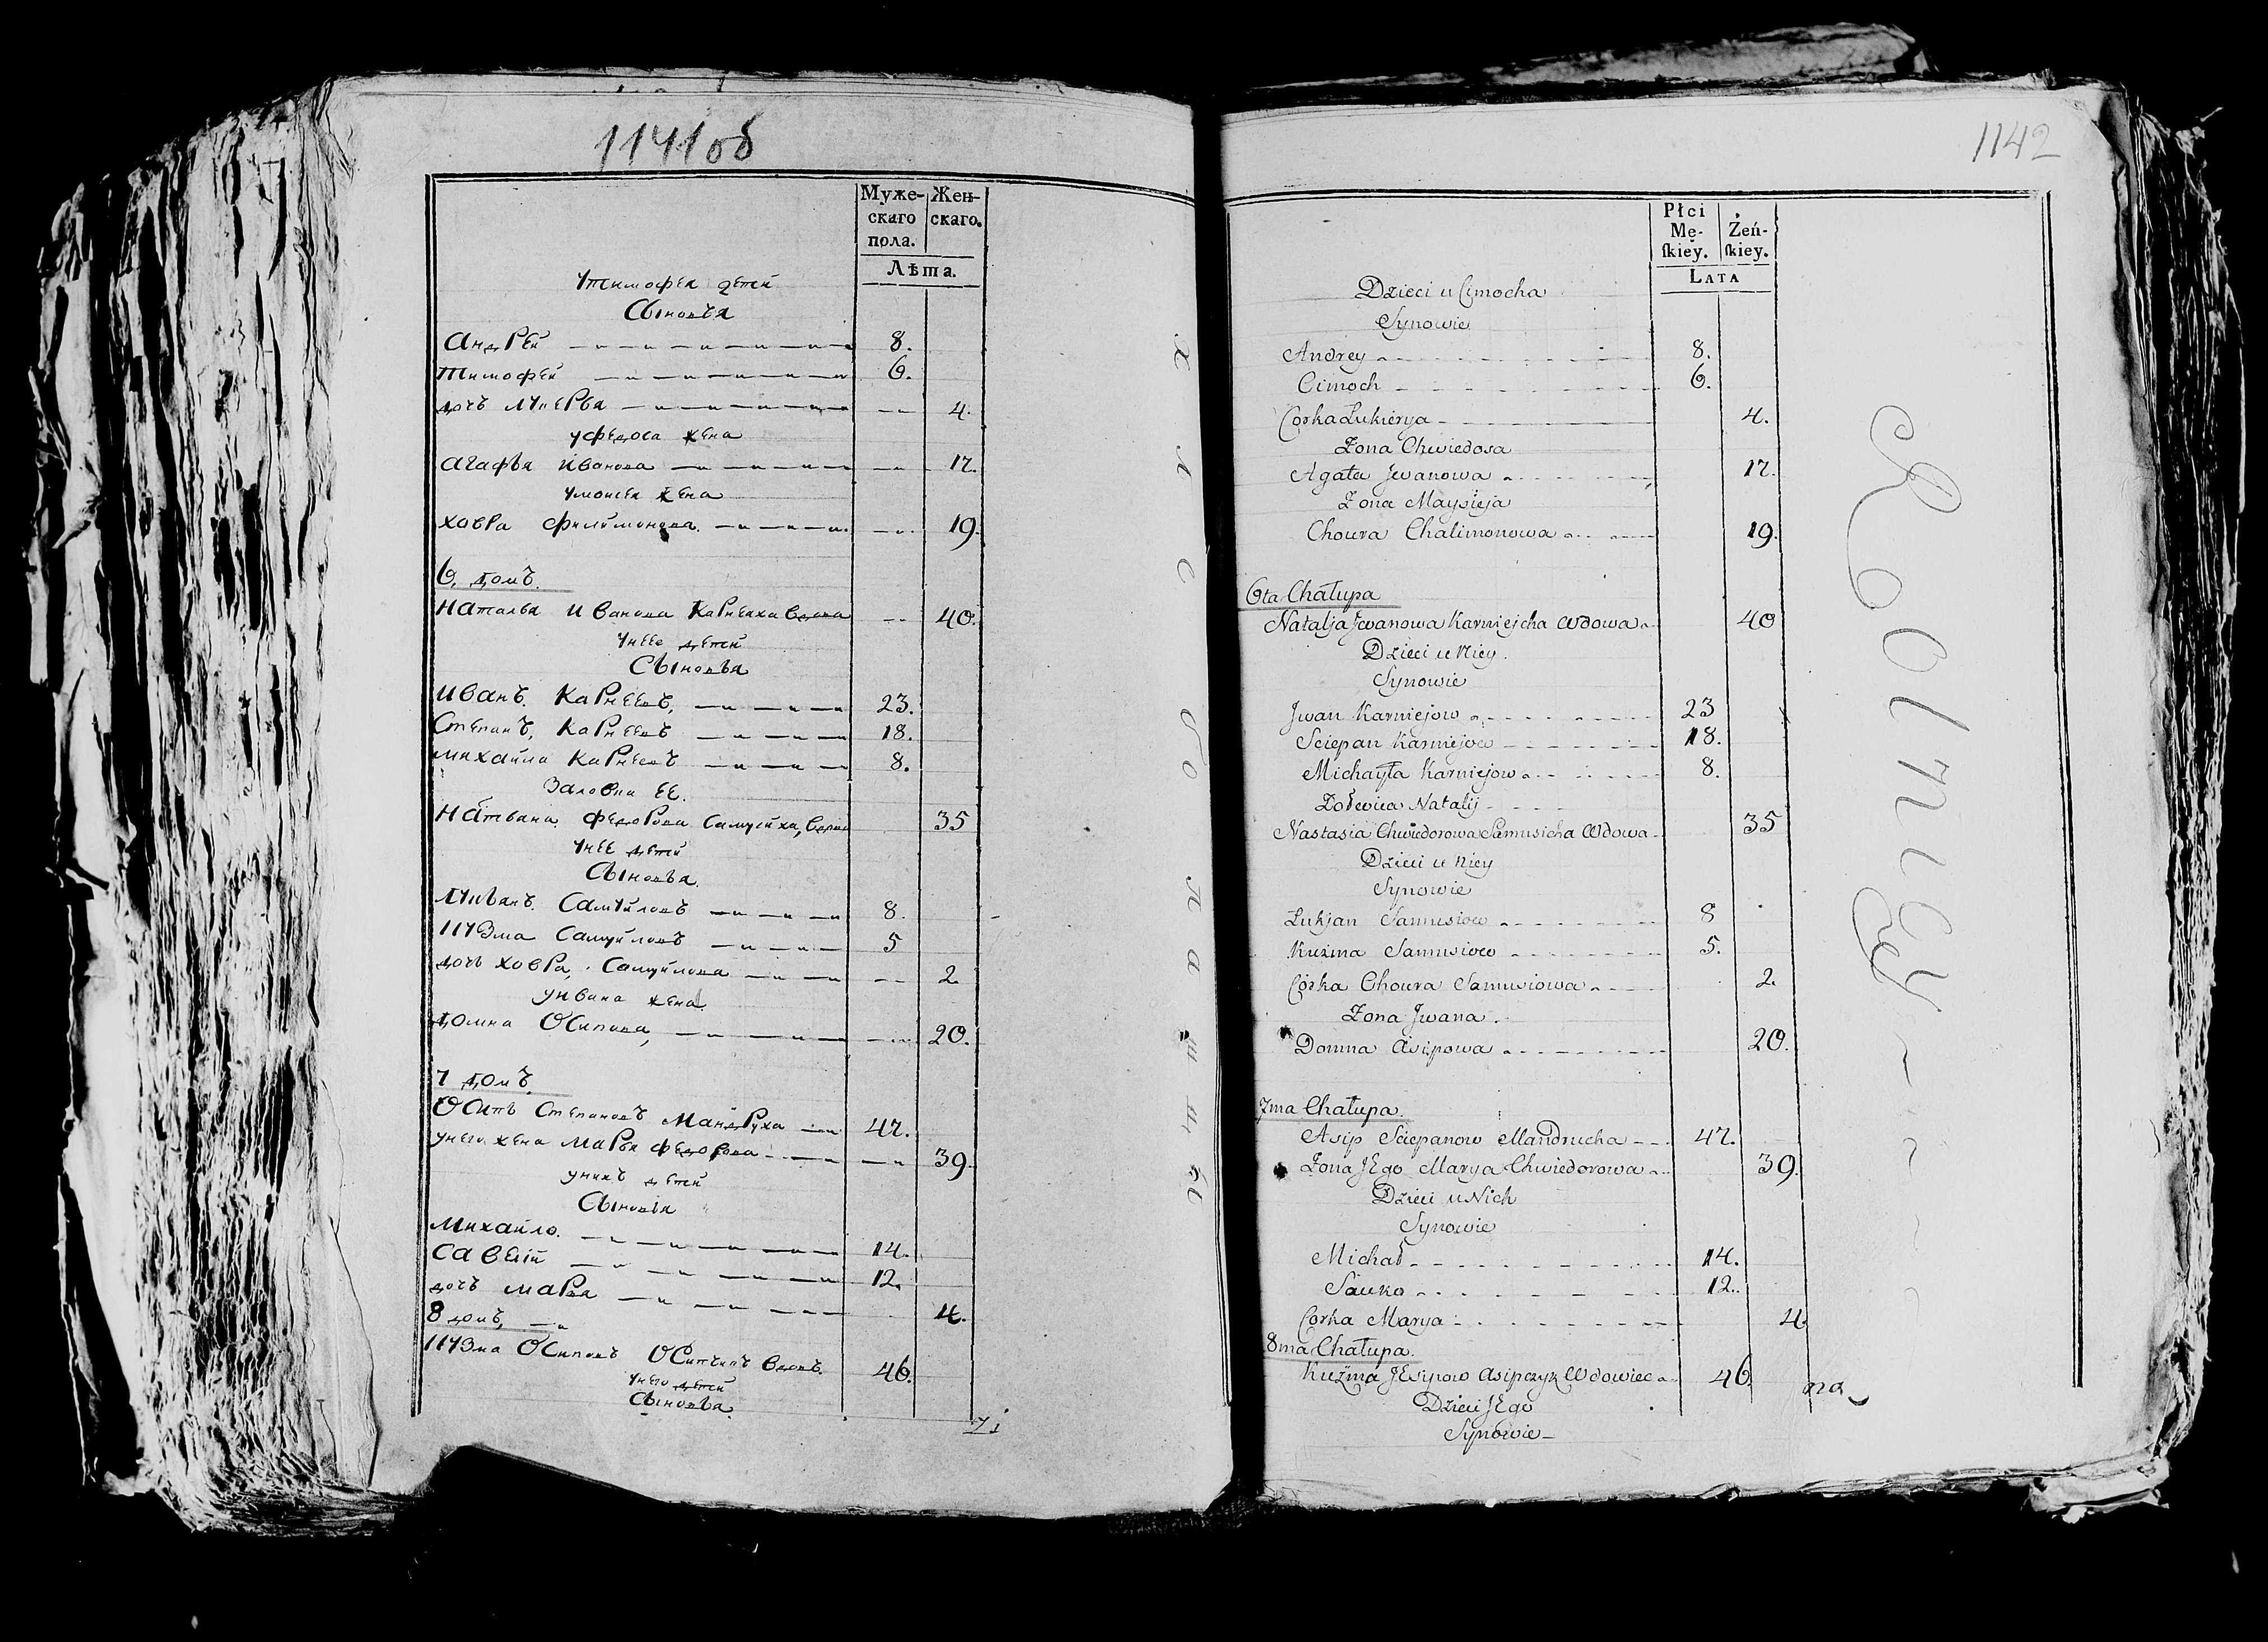 1141об
Муже-
скаго
пола.
Жен-
скаго.
Лѣта.
Утимофея детей
Сыновья
Андрей 8.
Тимофей 6.
дочъ Лукерья 4.
уфедоса жена
Агафья Иванова 17.
умоисея жена
Ховра Филимонова 19.
6. домъ.
Наталья Иванова Карнеиха вдова 40.
Унее детей
Сыновья
Иванъ Карнеевъ, 23.
Степанъ, Карнеевъ 18.
Михайла Карнеевъ 8.
Заловка ее.
Федорова Самусиха, вдова 35
Унее детей
Сыновья.
Лукьянъ Самуйловъ 8.
Кузма Самуйловъ 5
дочь Ховра, Самуйлова 2.
уивана жена.
Домна Осипова, 20.
7 домъ.
Осипъ Степановъ Мандруха 47.
унего жена Марья Федорова 39.
унихъ детей
Сыновья
Михайло. 14.
Савелий 12.
дочъ Марья 4.
8 домъ,
Кузма Осиповъ Осипчикъ вдовъ. 46.
Унего детей
Сыновья.
Хлебопашцы
1142
Płci
Mę-
ſkiey.
Żeń-
ſkiey.
LATA
Dzieci u Cimocha
Synowie
Andrey 8.
Cimoch 6.
Corka Łukierya 4.
Żona Chwiedosa
Agata Jwanowa 17.
Żona Maysieja
Choura Chalimonowa 19.
6ta Chałupa
Natalja Jwanowa Karniejcha Wdowa 40
Dzieci u Niey.
Synowie
Jwan Karniejow 23
Sciepan Karniejow 18.
Michayła Karniejow 8.
Natalij
Nastasia Chwiedorowa Samusicha Wdowa 35
Dzieci u Niey
Synowie
Łukjan Samusiow 8
Kuźma Samusiow 5.
Corka Choura Samusiowa 2.
Żona Jwana.
Domna Asipowa 20.
7ma Chałupa.
Asip Sciepanow Mandrucha 47.
Żona JEgo Marya Chwiedorowa 39.
Dzieci u Nich
Synowie
Michał 14.
Sauko 12.
Corka Marya 4
8ma Chałupa.
Kuźma JEsipow Asipczyk Wdowiec 46.
Dzieci JEgo
Synowie
Rolnicy
na